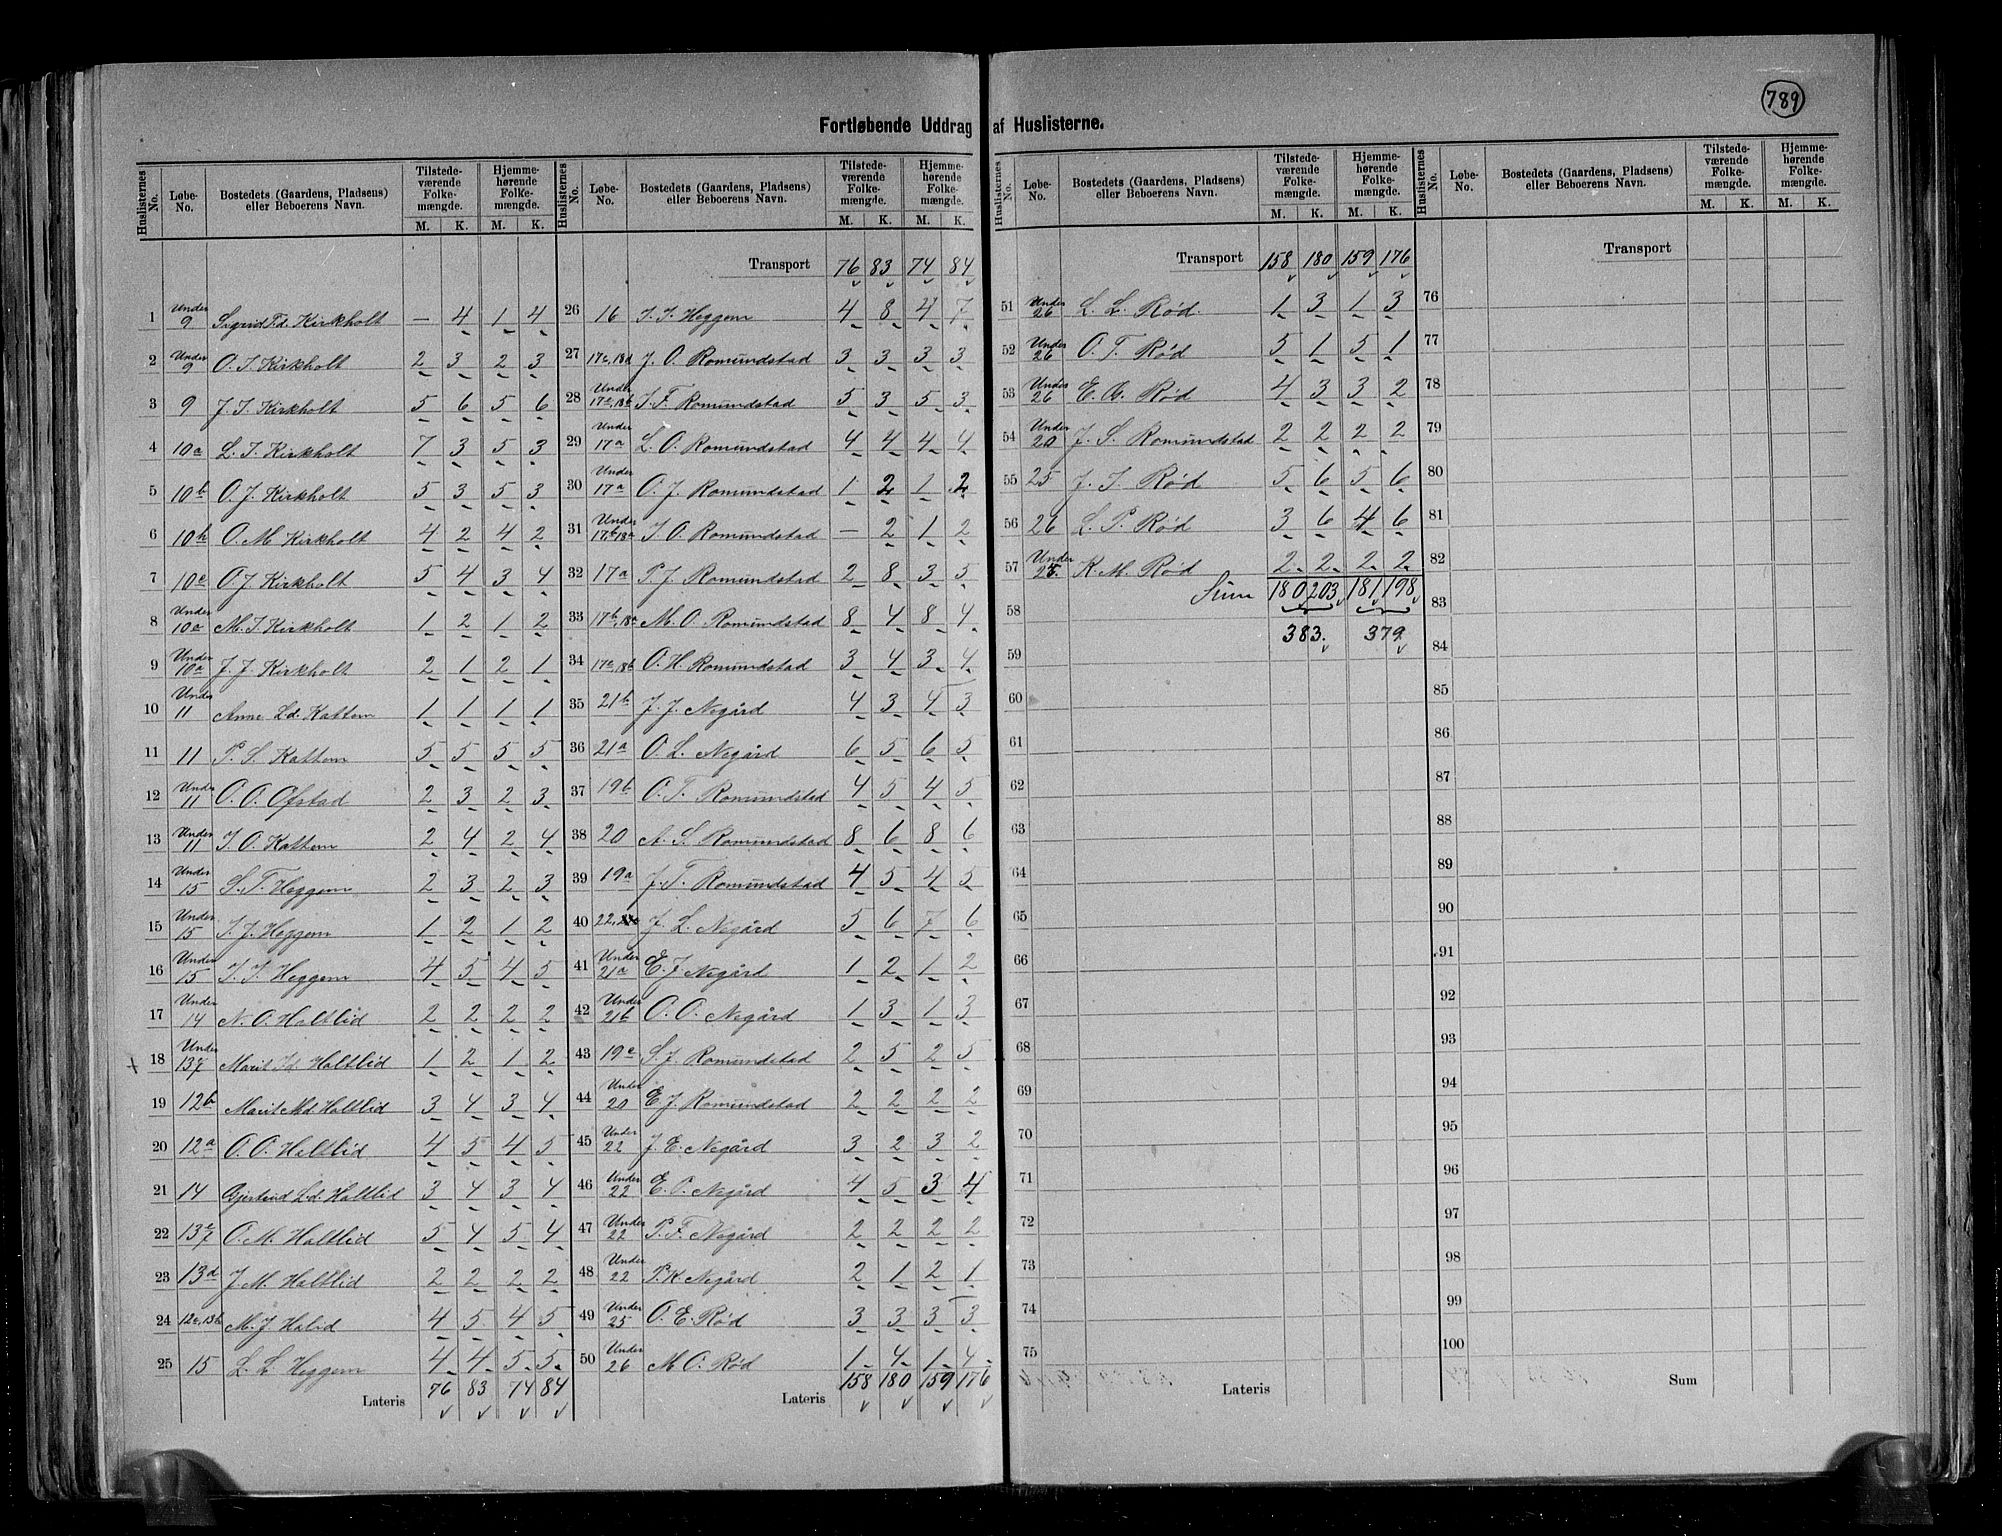 789
Fortløbende Uddrag af Huslisterne.
Huslisternes No. Løbe-No. Bostedets (Gaardens, Pladsens) eller Beboerens Navn. Tilstedeværende Folkemængde. M. K. Hjemmehørende Folkemængde. M. K.
1 Under 9 Sigrid Td. Kirkholt — 4 1 4
2 Under 9 O. T. Kirkholt 2 3 2 3
3 9 J. I. Kirkholt 5 6 5 6
4 10a L. I. Kirkholt 7 3 5 3
5 10b O. J. Kirkholt 5 3 5 3
6 10b O. M. Kirkholt 4 2 4 2
7 10c O. J. Kirkholt 5 4 3 4
8 Under 10a M. I. Kirkholt 1 2 1 2
9 Under 10a J. J. Kirkholt 2 1 2 1
10 Under 11 Anne Ld. Kattem 1 1 1 1
11 11 P. S. Kattem 5 5 5 5
12 Under 11 O. O. Ofstad 2 3 2 3
13 Under 11 I. O. Kattem 2 4 2 4
14 Under 15 S. T. Heggem 2 3 2 3
15 Under 15 I. J. Heggem 1 2 1 2
16 Under 15 I. I. Heggem 4 5 4 5
17 Under 14 N. O. Haltlid 2 2 2 2
18 Under 13 Marit Id. Haltlid 1 2 1 2
19 12b Marit Md. Haltlid 3 4 3 4
20 12a O. O. Haltlid 4 5 4 5
21 14 Gjertrud Ld. Haltlid 3 4 3 4
22 13 O. M. Haltlid 5 4 5 4
23 13d J. M. Haltlid 2 2 2 2
24 12c, 13b M. J. Halid 4 5 4 5
25 15 L. L. Heggem 4 4 5 5
Lateris 76 83 74 84
Huslisternes No. Løbe-No. Bostedets (Gaardens, Pladsens) eller Beboerens Navn. Tilstedeværende Folkemængde. M. K. Hjemmehørende Folkemængde. M. K.
Transport 76 83 74 84
26 16 I. I. Heggem 4 8 4 7
27 17c, 18d J. O. Romundstad 3 3 3 3
28 Under 17c, 18b S. F. Romundstad 5 3 5 3
29 Under 17a L. O. Romundstad 4 4 4 4
30 Under 17a O. J. Romundstad 1 2 1 2
31 Under 17b, 18a I. O. Romundstad — 2 1 2
32 17a P. J. Romundstad 2 8 3 5
33 17b, 18a M. O. Romundstad 8 4 8 4
34 17c, 18b O. H. Romundstad 3 4 3 4
35 21b J. J. Negård 4 3 4 3
36 21a O. L. Negård 6 5 6 5
37 19b O. T. Romundstad 4 5 4 5
38 20 A. S. Romundstad 8 6 8 6
39 19a J. T. Romundstad 4 5 4 5
40 22, J. L. Negård 5 6 7 6
41 Under 21a E. J. Negård 1 2 1 2
42 Under 21b O. O. Negård 1 3 1 3
43 19c S. J. Romundstad 2 5 2 5
44 Under 20 E. J. Romundstad 2 2 2 2
45 Under 22 J. E. Negård 3 2 3 2
46 Under 22 E. O. Negård 4 5 3 4
47 Under 22 P. F. Negård 2 2 2 2
48 Under 22 P. K. Negård 2 1 2 1
49 Under 25 O. E. Rød 3 3 3 3
50 Under 26 M. O. Rød 1 4 1 4
Lateris 158 180 159 176
Huslisternes No. Løbe-No. Bostedets (Gaardens, Pladsens) eller Beboerens Navn. Tilstedeværende Folkemængde. M. K. Hjemmehørende Folkemængde. M. K.
Transport 158 180 159 176
51 Under 26 L. L. Rød 1 3 1 3
52 Under 26 O. T. Rød 5 1 5 1
53 Under 26 E. G. Rød 4 3 3 2
54 Under 20 J. S. Romundstad 2 2 2 2
55 25 J. I. Rød 5 6 5 6
56 26 L. P. Rød 3 6 4 6
57 Under 25 K. M. Rød 2 2 2 2
Sum 180 203 181 198
58
383 379
59
60
61
62
63
64
65
66
67
68
69
70
71
72
73
74
75
Lateris
Huslisternes No. Løbe-No. Bostedets (Gaardens, Pladsens) eller Beboerens Navn. Tilstedeværende Folkemængde. M. K. Hjemmehørende Folkemængde. M. K.
Transport
76
77
78
79
80
81
82
83
84
85
86
87
88
89
90
91
92
93
94
95
96
97
98
99
100
Sum